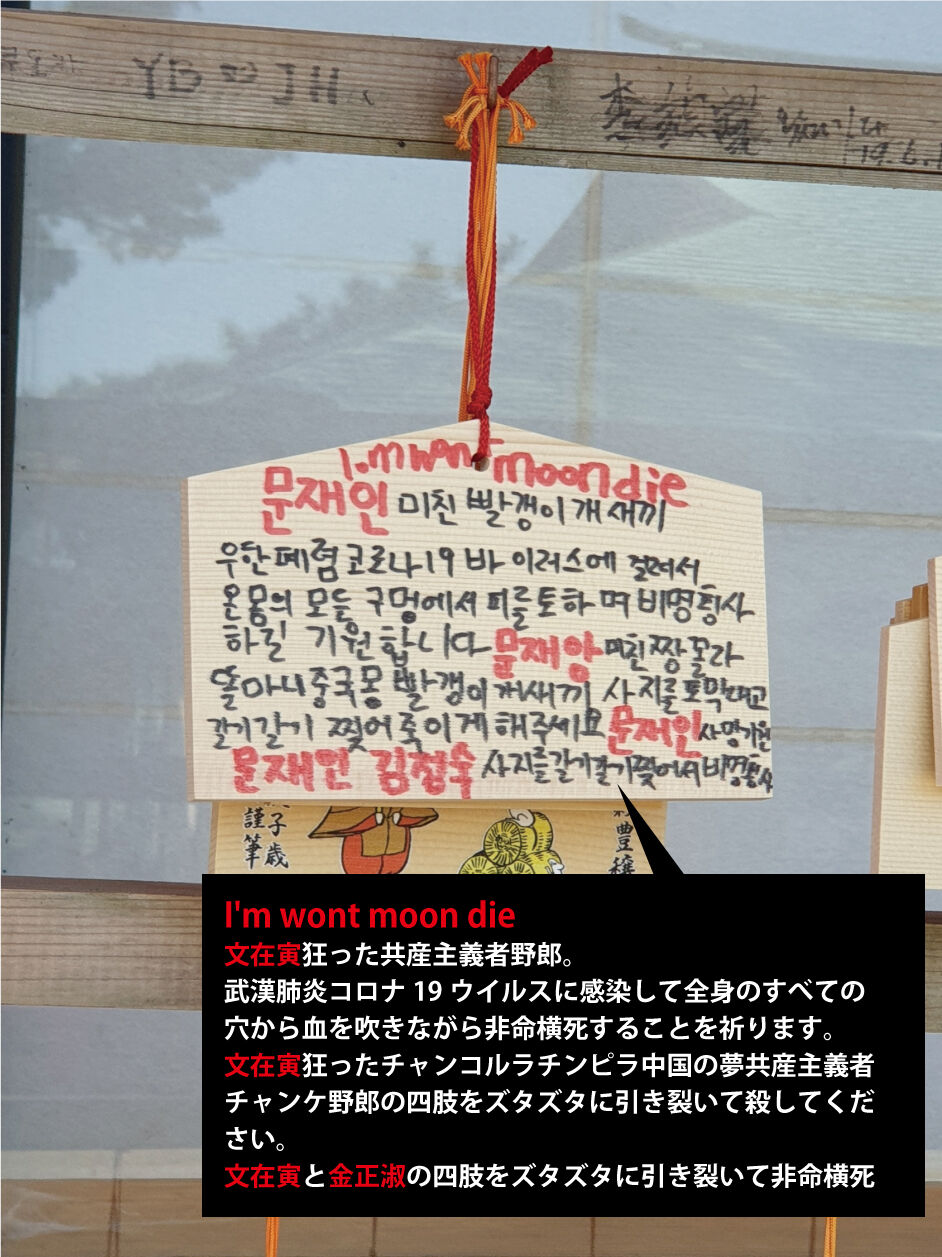 YB JH
19.6.1
I.m wont moon die
문재인 미친 빨갱이 개새끼
우한폐렴 코로나19 바이러스에 걸려서
온몸의 모든 구멍에서 피를 토하며 비명횡사
하길 기원합니다 문재앙 미친 짱꼴라
똘마니 중국몽 빨갱이 개새끼 사지를 토막내고
갈기갈기 찢어 죽이게 해주세요 문재인 사망기원
문재인 김정숙 사지를 갈기갈기 찢어서 비명횡사
子歳
謹筆
豊穣
I'm wont moon die
文在寅狂った共産主義者野郎。
武漢肺炎コロナ 19 ウイルスに感染して全身のすべての
穴から血を吹きながら非命横死することを祈ります。
文在寅狂ったチャンコルラチンピラ中国の夢共産主義者
チャンケ野郎の四肢をズタズタに引き裂いて殺してくだ
さい。
文在寅と金正淑の四肢をズタズタに引き裂いて非命横死